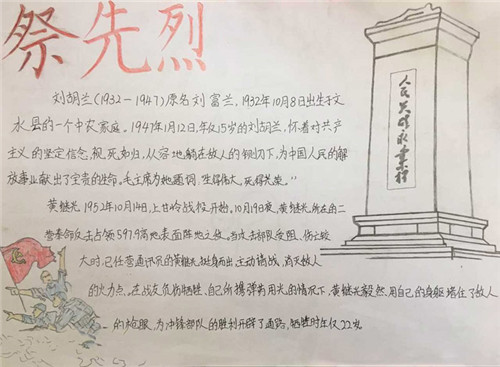 祭先烈
刘胡兰(1932—1947)原名刘富兰,1932年10月8日出生于文
水县的一个中农家庭。1947年1月12日,年仅15岁的刘胡兰,怀着对共产
主义的坚定信念,视死如归,从容地躺在敌人的铡刀下,为中国人民的解
放事业献出了宝贵的生命。毛主席为她题词,"生得伟大,死得光荣。"
黄继光 1952年10月14日,上甘岭战役开始。10月19日夜,黄继光所在的二
营奉命反击占领597.9高地表面阵地之敌。当攻击部队受阻,伤亡较
大时,已任营通讯员的黄继光挺身而出,主动请战,消灭敌人
的火力点。在战友负伤牺牲、自己所携弹药用光的情况下,黄继光毅然用自己的身躯堵住了敌人
的枪眼,为冲锋部队的胜利开辟了通路,牺牲时年仅22岁。
人民英雄永垂不朽